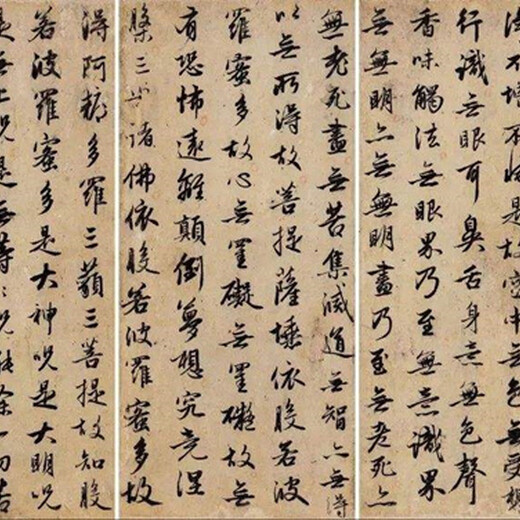 淨不增不減是故空中無色無受想
行識無眼耳鼻舌身意無色聲
香味觸法無眼界乃至無意識界
無無明亦無無明盡乃至無老死亦
無老死盡無苦集滅道無智亦無得
以無所得故菩提薩埵依般若波
羅蜜多故心無罣礙無罣礙故無
有恐怖遠離顛倒夢想究竟涅
槃三世諸佛依般若波羅蜜多故
得阿耨多羅三藐三菩提故知般
若波羅蜜多是大神呪是大明呪
是無上呪是無等等呪能除一切苦